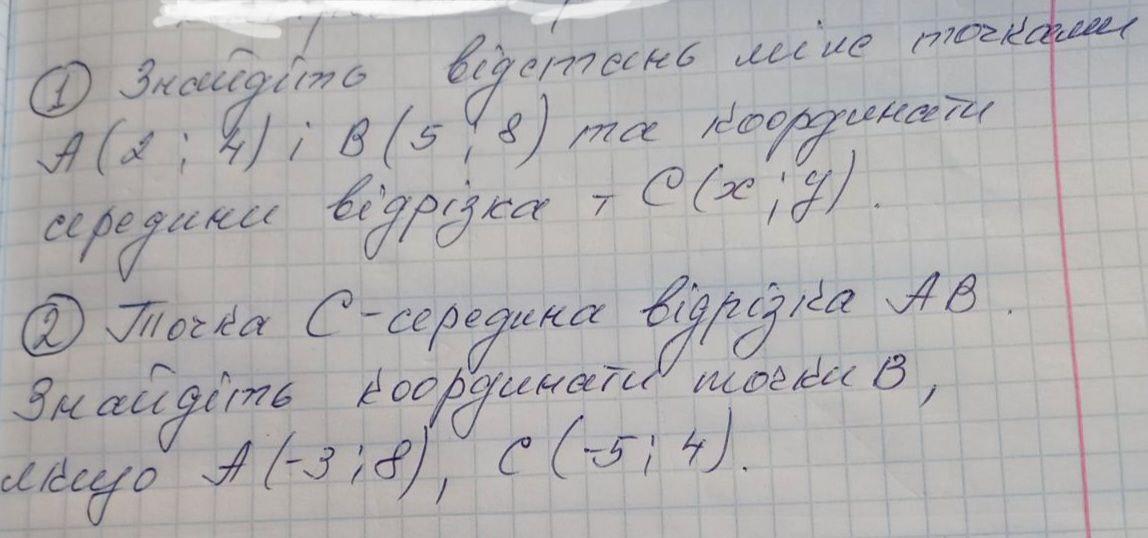 ① Знайдіть відстань між точками
А(2; 4) і В(5; 8) та координати
середини відрізка - С(х; у).
② Точка С-середина відрізка АВ.
Знайдіть координати точки В,
якщо А(-3; 8), С(-5; 4).